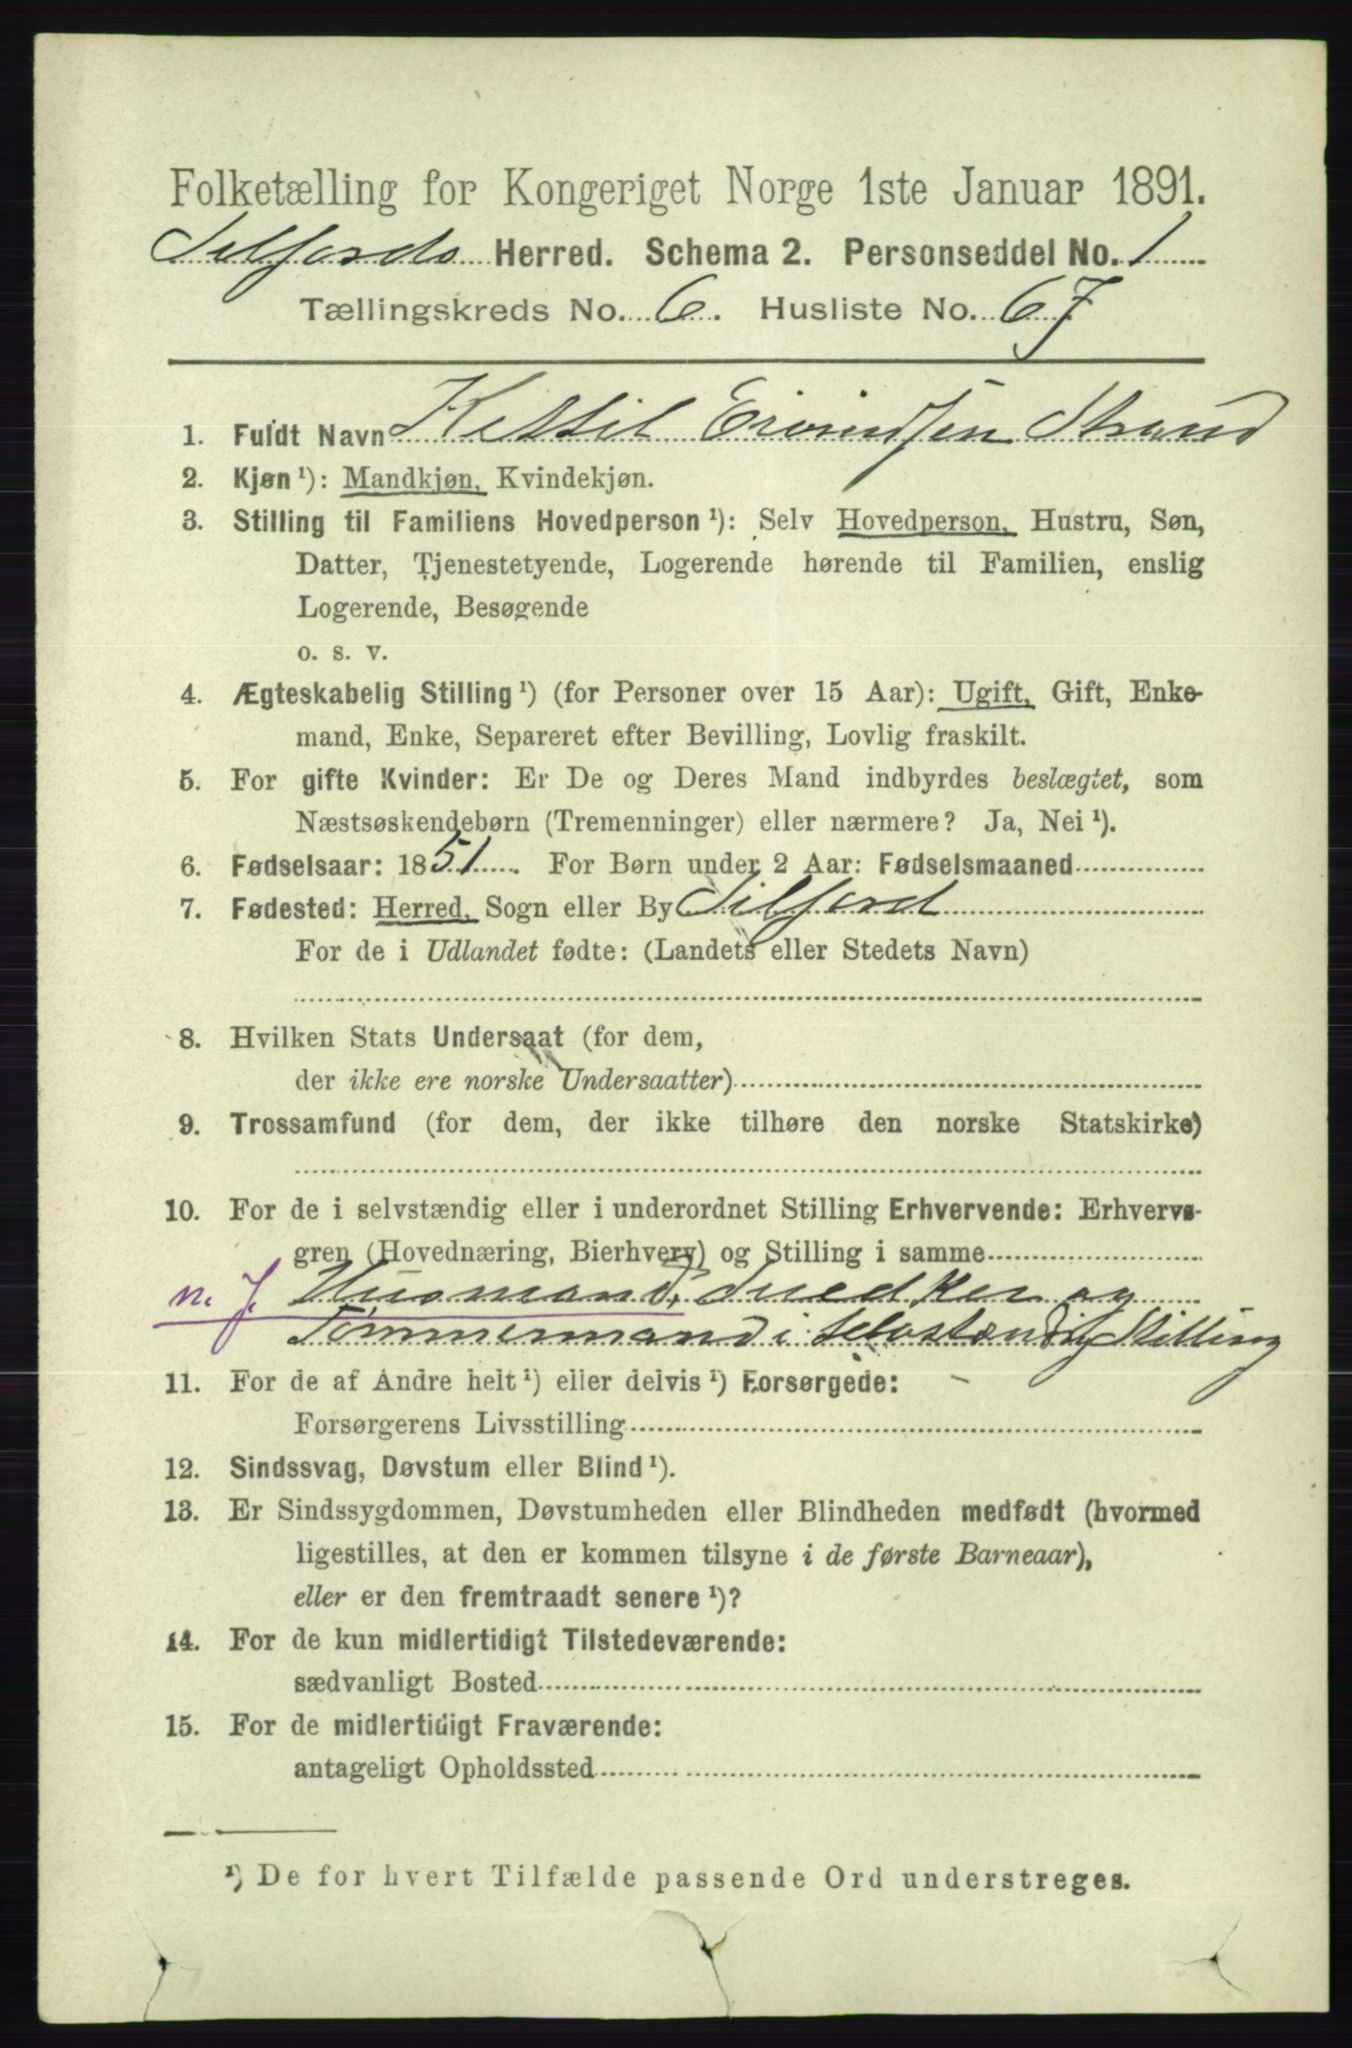 Folketælling for Kongeriget Norge 1ste Januar 1891.
Siljords Herred. Schema 2. Personseddel No. 1
Tællingskreds No. 6. Husliste No. 67
1. Fuldt Navn Kittil Eivindsen Strand
2. Kjøn ¹): Mandkjøn, Kvindekjøn.
3. Stilling til Familiens Hovedperson ¹): Selv Hovedperson, Hustru, Søn,
Datter, Tjenestetyende, Logerende hørende til Familien, enslig
Logerende, Besøgende
o. s. v.
4. Ægteskabelig Stilling ¹) (for Personer over 15 Aar): Ugift, Gift, Enke-
mand, Enke, Separeret efter Bevilling, Lovlig fraskilt.
5. For gifte Kvinder: Er De og Deres Mand indbyrdes beslægtet, som
Næstsøskendebørn (Tremenninger) eller nærmere? Ja, Nei ¹).
6. Fødselsaar: 1851. For Børn under 2 Aar: Fødselsmaaned
7. Fødested: Herred, Sogn eller By Siljord
For de i Udlandet fødte: (Landets eller Stedets Navn)
8. Hvilken Stats Undersaat (for dem,
der ikke ere norske Undersaatter)
9. Trossamfund (for dem, der ikke tilhøre den norske Statskirke)
10. For de i selvstændig eller i underordnet Stilling Erhvervende: Erhvervs-
gren (Hovednæring, Bierhverv) og Stilling i samme
m. J. Husmand, Snedker og
Tømmermand i selvstændig Stilling
11. For de af Andre helt ¹) eller delvis ¹) Forsørgede:
Forsørgerens Livsstilling
12. Sindssvag, Døvstum eller Blind ¹).
13. Er Sindssygdommen, Døvstumheden eller Blindheden medfødt (hvormed
ligestilles, at den er kommen tilsyne i de første Barneaar),
eller er den fremtraadt senere ¹)?
14. For de kun midlertidigt Tilstedeværende:
sædvanligt Bosted
15. For de midlertidigt Fraværende:
antageligt Opholdssted
¹) De for hvert Tilfælde passende Ord understreges.